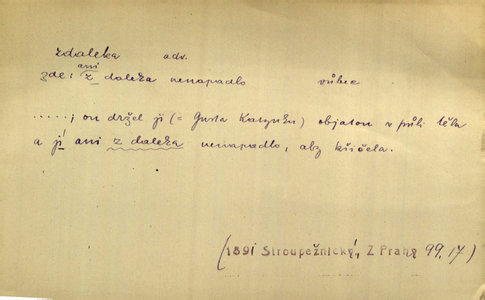 zdaleka adv.
ani
zde: z daleka nenapadlo vůbec
.....; on držel ji (= Gusta Katynku) objatou v půli těla
a jí ani z daleka nenapadlo, aby křičela.
(1891 Stroupežnický, Z Prahy 99.17)